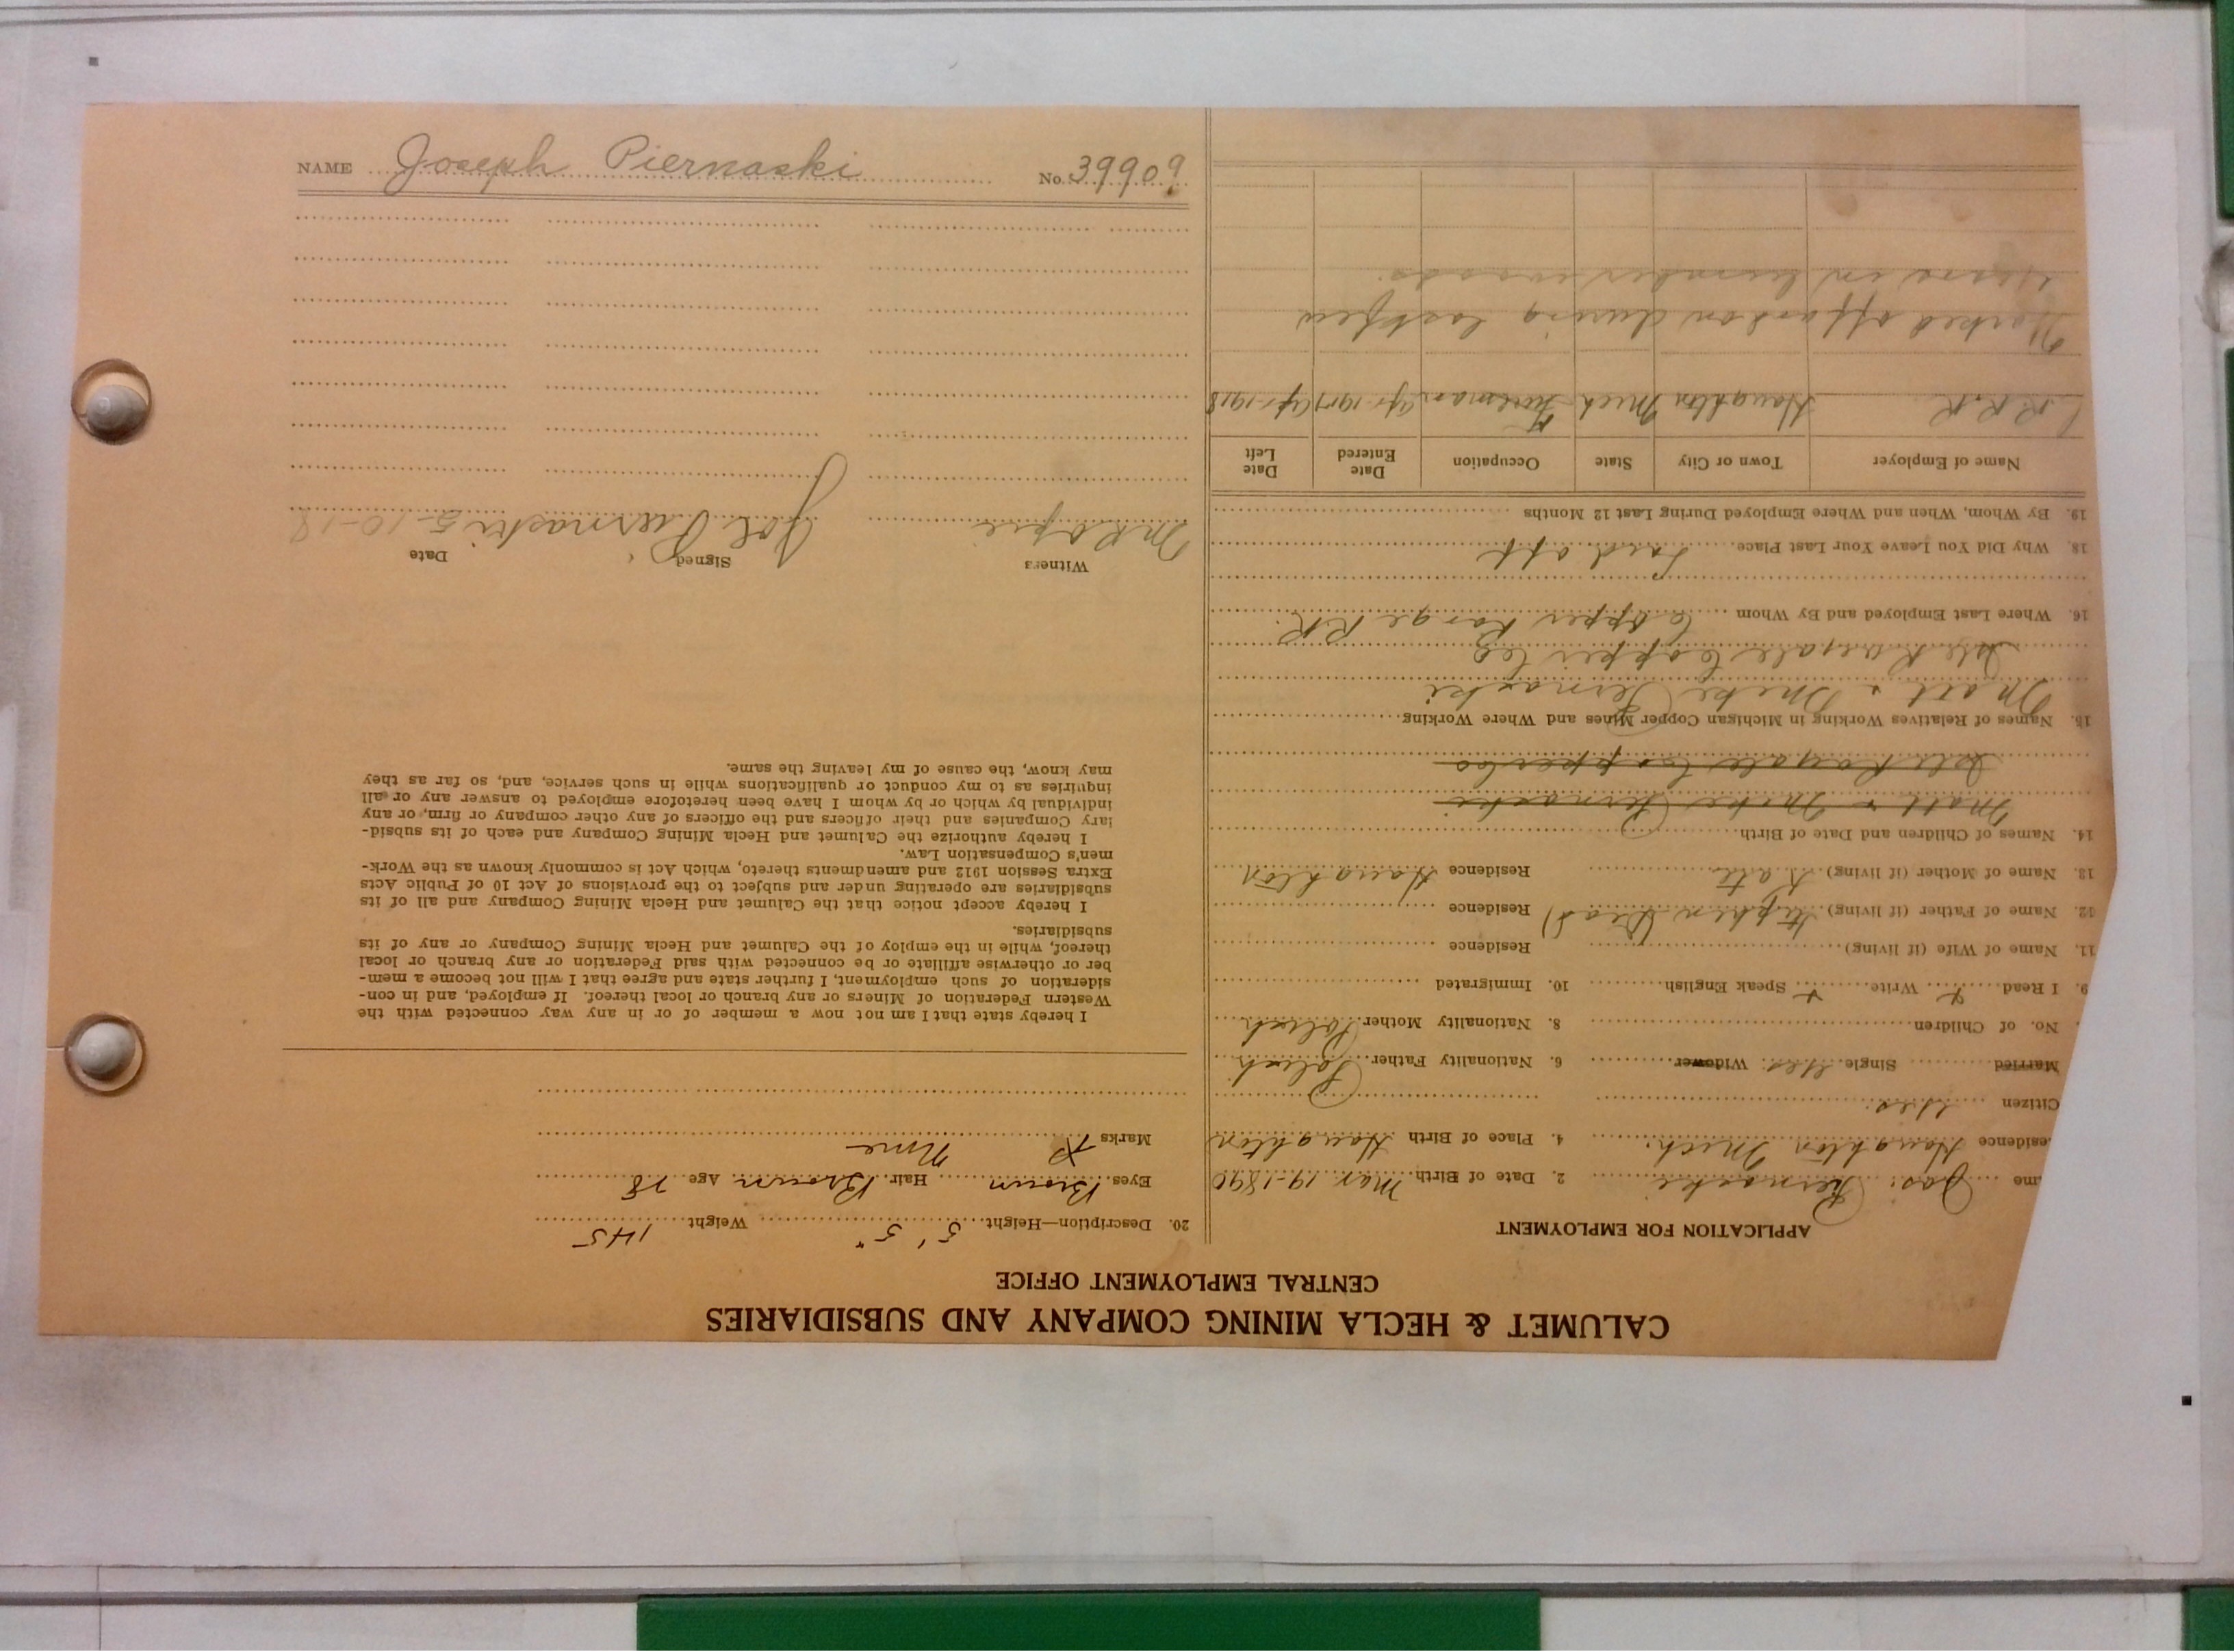 NAME Joseph Piernaski No. 39909
CALUMET & HECLA MINING COMPANY AND SUBSIDIARIES
CENTRAL EMPLOYMENT OFFICE
APPLICATION FOR EMPLOYMENT
ame Jos. Piernaski 2. Date of Birth Mar. 19-1890
esidence Houghton Mich. 4. Place of Birth Houghton
Citizen Yes.
Married Single Yes. Widower 6. Nationality Father Polish
No. of Children 8. Nationality Mother Polish
9. I Read x Write x Speak English 10. Immigrated
11. Name of Wife (if living) Residence
12. Name of Father (if living) Stephen (Dead) Residence
13. Name of Mother (if living) Kate Residence Houghton
14. Names of Children and Date of Birth
Matt & Mike Piernaski
Isle Royale Copper Co
15. Names of Relatives Working in Michigan Copper Mines and Where Working
Matt & Mike Piernaski
Isle Royale Copper Co
16. Where Last Employed and By Whom Copper Range R.R.
18. Why Did You Leave Your Last Place Laid off
19. By Whom, When and Where Employed During Last 12 Months
Name of Employer Town or City State Occupation Date Entered Date Left
C.R.R.R. Houghton Mich Fireman Ap. 1917 Ap. 1918
Worked off and on during last few
years in lumber woods.
20. Description—Height 5' 5" Weight 145
Eyes Brown Hair Brown Age 28
Marks None
I hereby state that I am not now a member of or in any way connected with the
Western Federation of Miners or any branch or local thereof. If employed, and in con-
sideration of such employment, I further state and agree that I will not become a mem-
ber or otherwise affiliate or be connected with said Federation or any branch or local
thereof, while in the employ of the Calumet and Hecla Mining Company or any of its
subsidiaries.
I hereby accept notice that the Calumet and Hecla Mining Company and all of its
subsidiaries are operating under and subject to the provisions of Act 10 of Public Acts
Extra Session 1912 and amendments thereto, which Act is commonly known as the Work-
men's Compensation Law.
I hereby authorize the Calumet and Hecla Mining Company and each of its subsid-
iary Companies and their officers and the officers of any other company or firm, or any
individual by which or by whom I have been heretofore employed to answer any or all
inquiries as to my conduct or qualifications while in such service, and, so far as they
may know, the cause of my leaving the same.
Witness Signed Date
Joe Piernaski 5-10-18